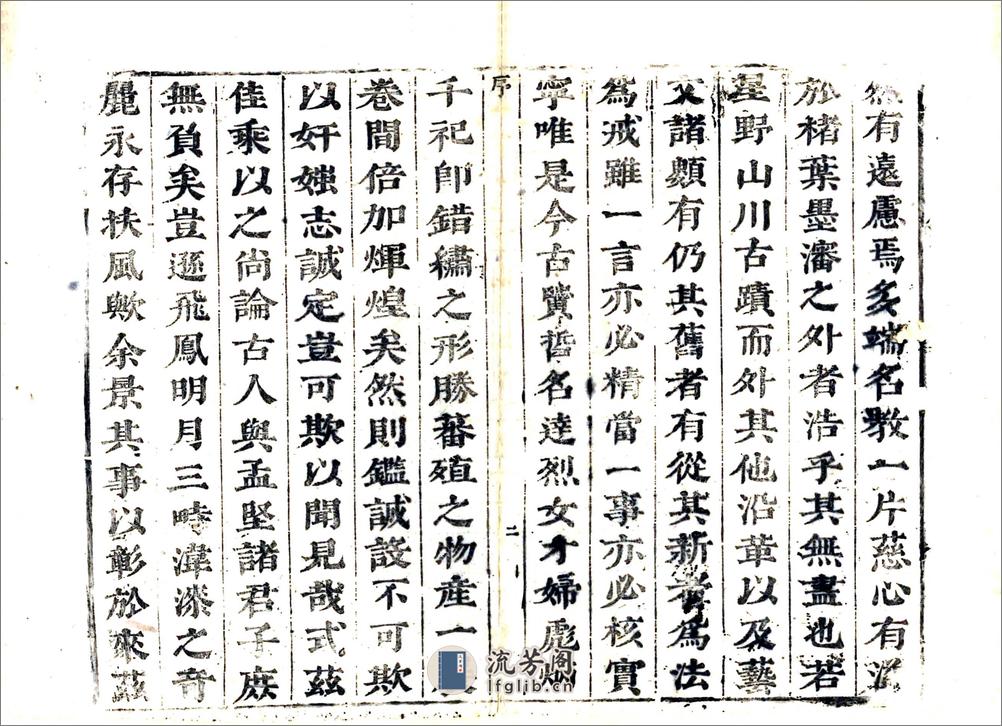 然有遠慮焉多端名教一片慈心有溢
於楮葉墨瀋之外者浩乎其無盡也若
星野山川古蹟而外其他沿革以及藝
文諸類有仍其舊者有從其新者為法
為戒雖一言亦必精當一事亦必核實
寧唯是今古賢哲名達烈女才婦彪炳
序
二
千祀即錯繡之形勝蕃殖之物產一
卷間倍加煇煌矣然則鑑誠設不可欺
以奸媸志誠定豈可欺以聞見哉式茲
佳乘以之尚論古人與孟堅諸君子庶
無負矣豈遜飛鳳明月三畤漳漆之奇
麗永存扶風歟余景其事以彰於來茲
流芳阁
lfglib.cn